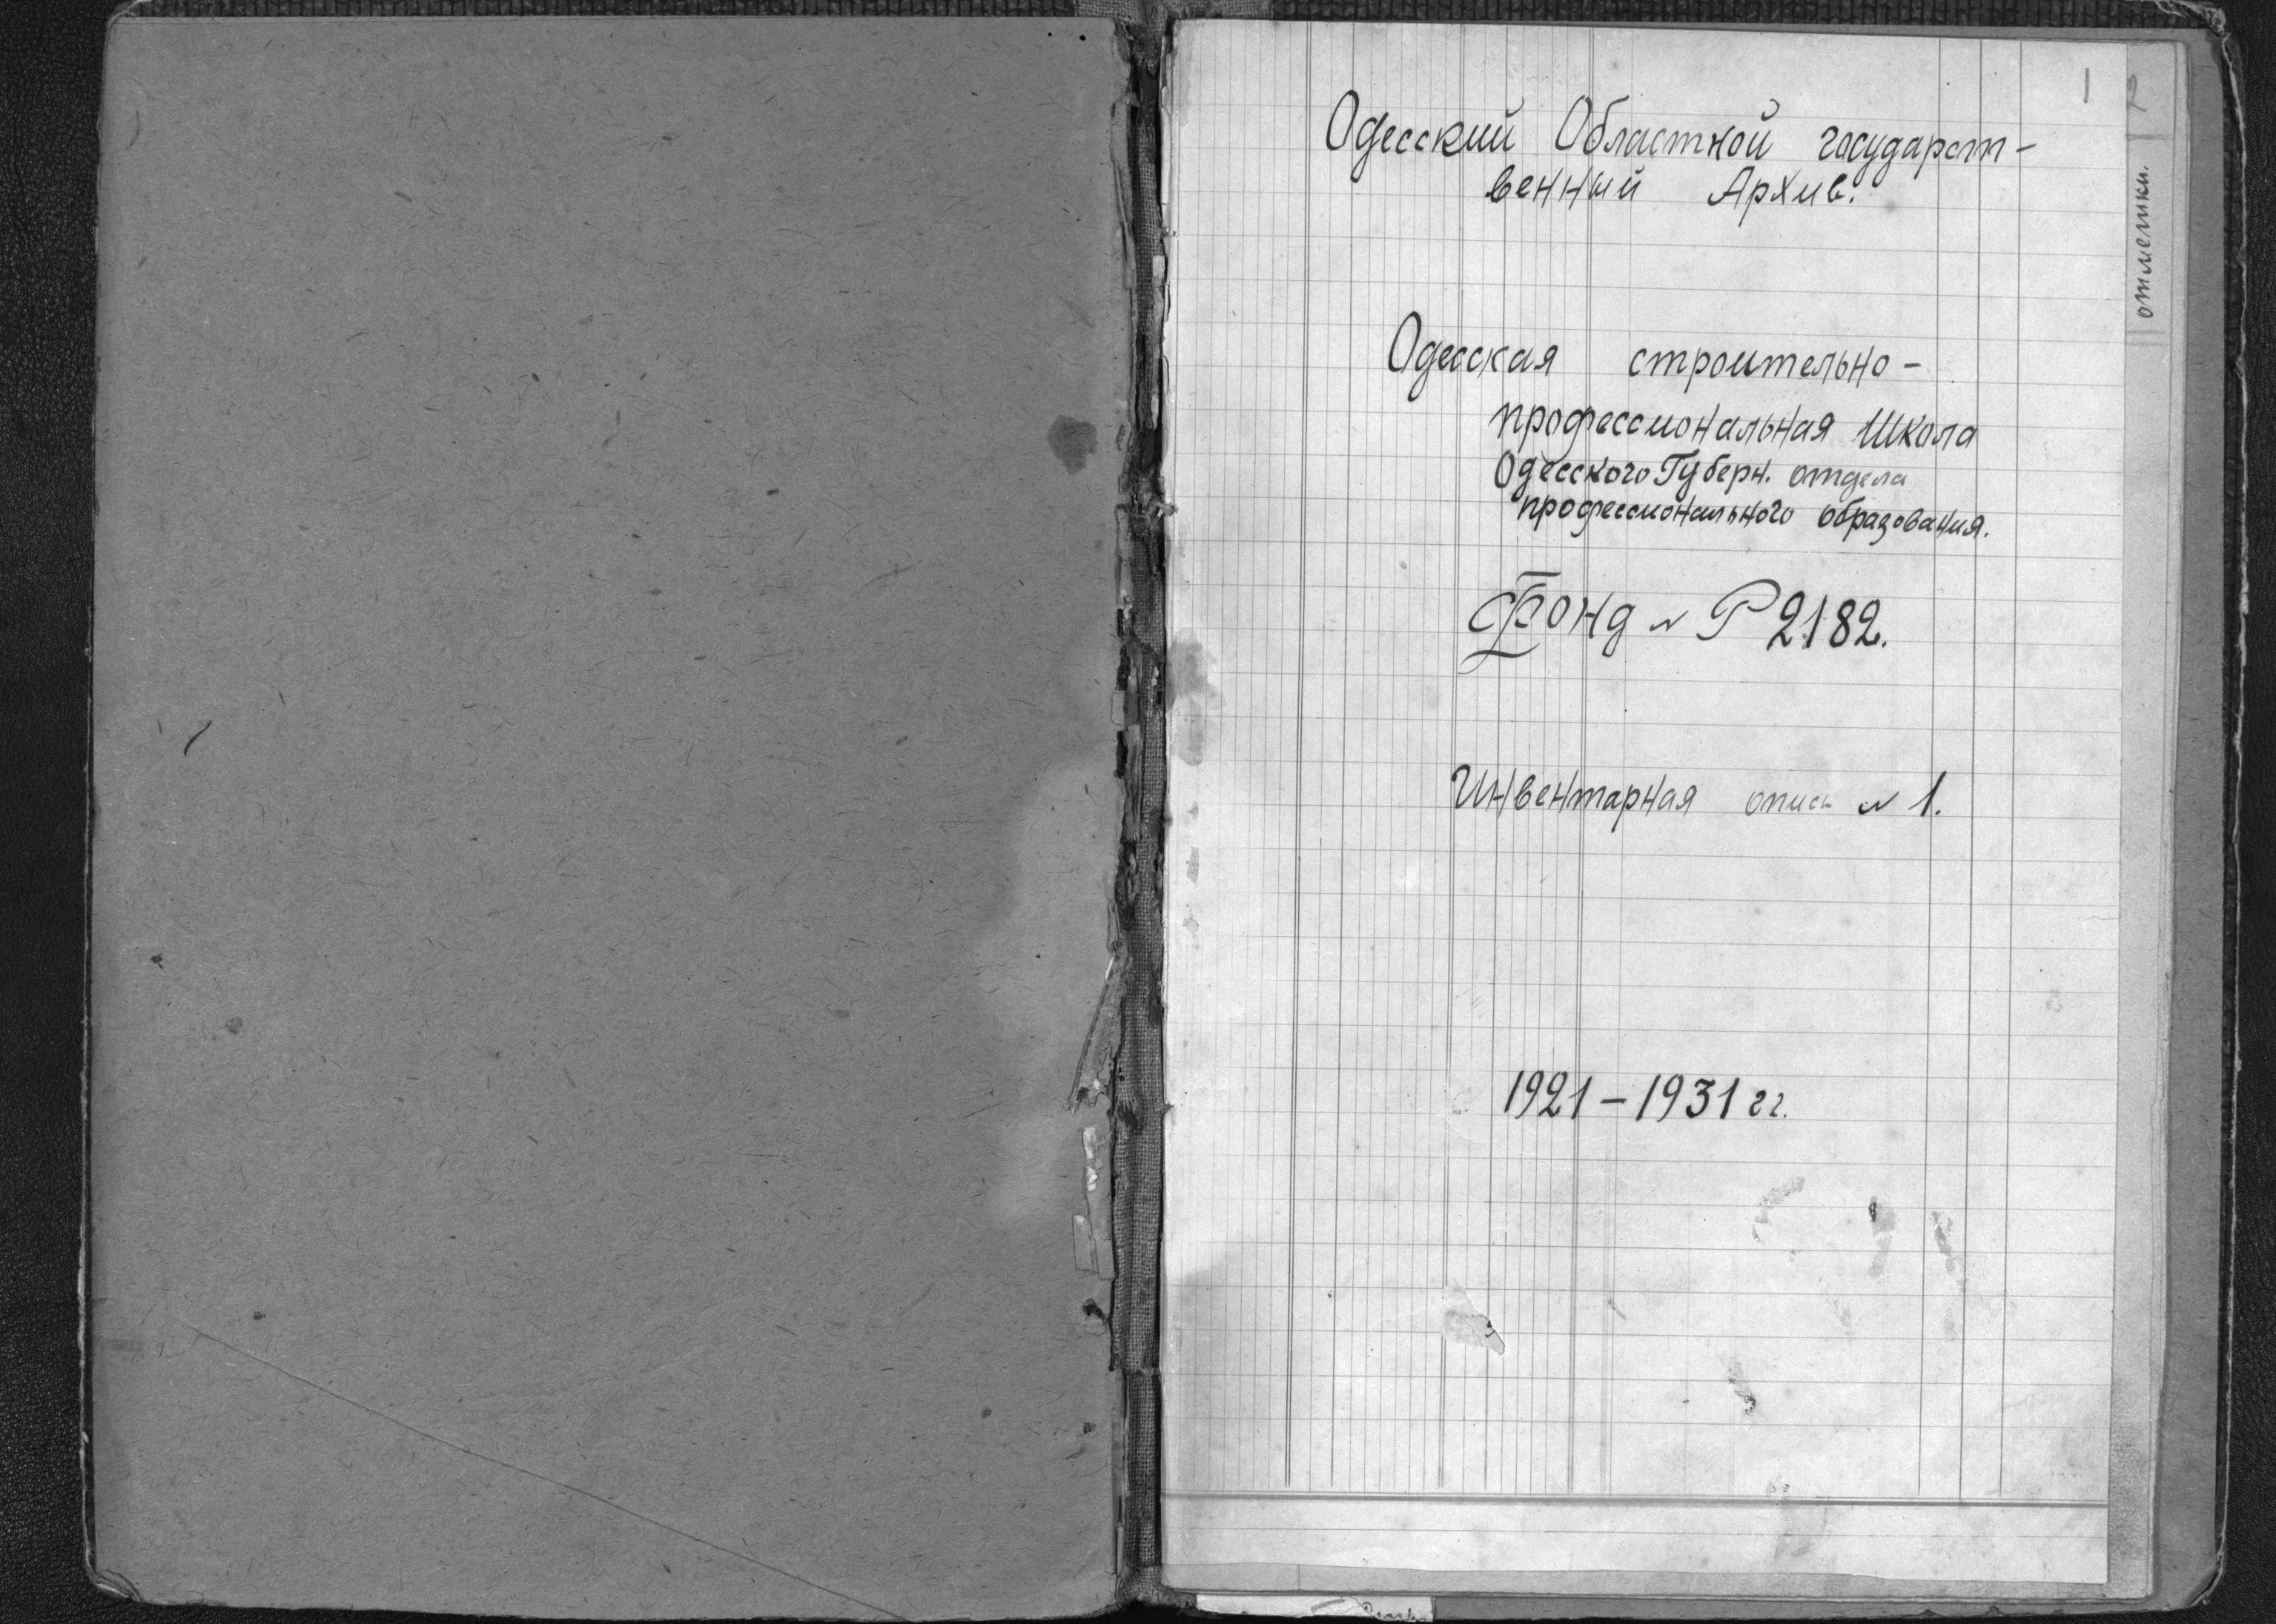 1
Одесский Областной государст-
венный Архив.
Одесская строительно-
профессиональная Школа
Одесского Губерн. отдела
профессионального образования.
Фонд № Р 2182.
Инвентарная опись № 1.
1921 – 1931 гг.
2
отметки.